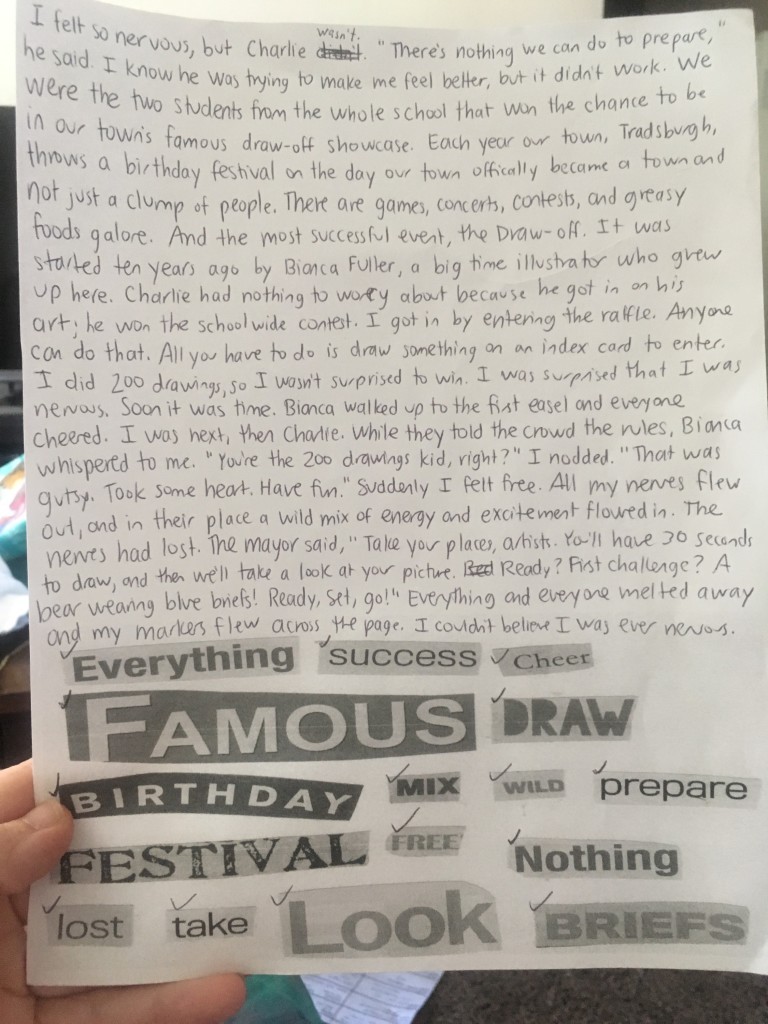 I felt so nervous, but Charlie didn't wasn't. "There's nothing we can do to prepare,"
he said. I know he was trying to make me feel better, but it didn't work. We
were the two students from the whole school that won the chance to be
in our town's famous draw-off showcase. Each year our town, Tradsburgh,
throws a birthday festival on the day our town offically became a town and
not just a clump of people. There are games, concerts, contests, and greasy
foods galore. And the most successful event, the Draw-off. It was
started ten years ago by Bianca Fuller, a big time illustrator who grew
up here. Charlie had nothing to worry about because he got in on his
art; he won the schoolwide contest. I got in by entering the raffle. Anyone
can do that. All you have to do is draw something on an index card to enter.
I did 200 drawings, so I wasn't surprised to win. I was surprised that I was
nervous. Soon it was time. Bianca walked up to the first easel and everyone
cheered. I was next, then Charlie. While they told the crowd the rules, Bianca
whispered to me. "You're the 200 drawings kid, right?" I nodded. "That was
gutsy. Took some heart. Have fun." Suddenly I felt free. All my nerves flew
out, and in their place a wild mix of energy and excitement flowed in. The
nerves had lost. The mayor said, "Take your places, artists. You'll have 30 seconds
to draw, and then we'll take a look at your picture. Red Ready? First challenge? A
bear wearing blue briefs! Ready, set, go!" Everything and everyone melted away
and my markers flew across the page. I couldn't believe I was ever nervous.
Everything success Cheer
FAMOUS DRAW
BIRTHDAY MIX WILD prepare
FESTIVAL FREE Nothing
lost take Look BRIEFS